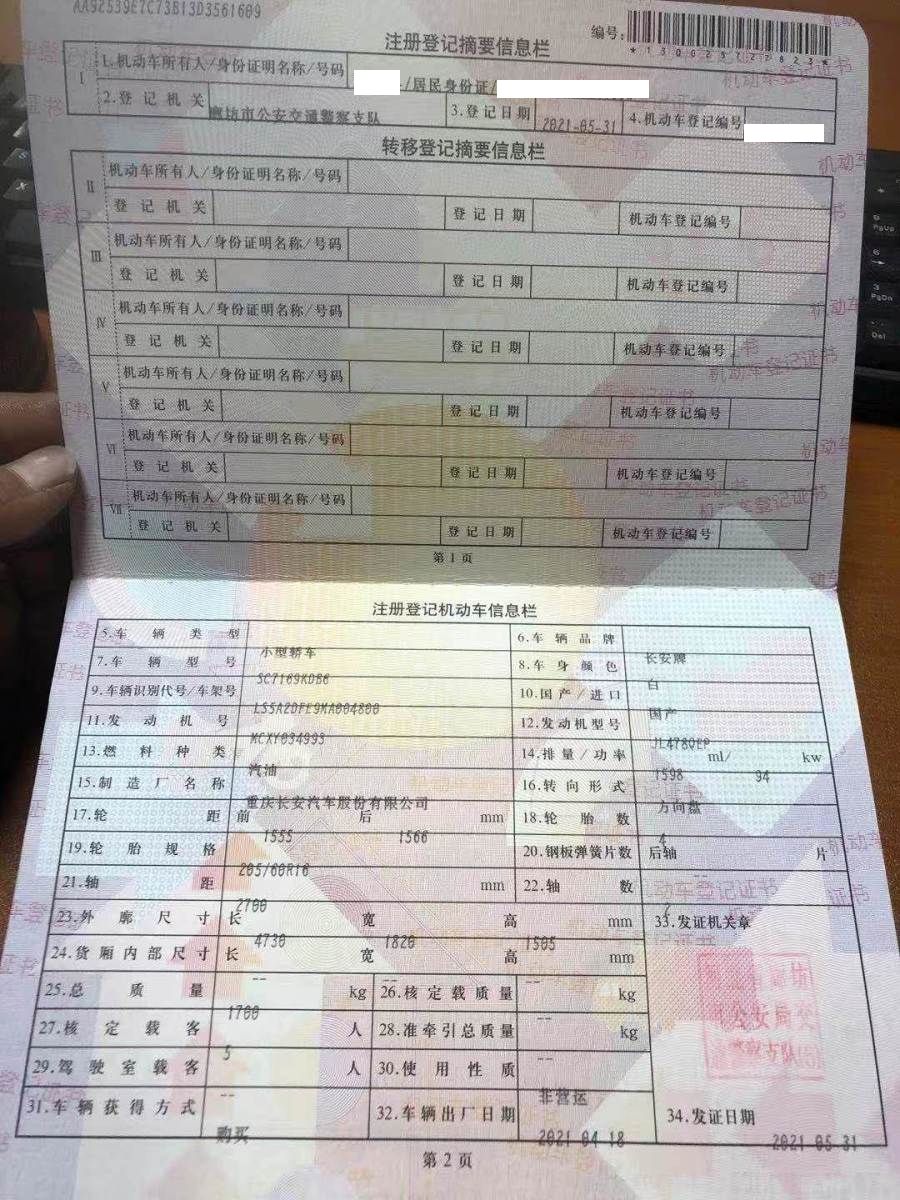 AA92539E7C73B13D3561609
注册登记摘要信息栏
编号:
*130025722823*
I 1.机动车所有人/身份证明名称/号码 /居民身份证/
2.登记机关 廊坊市公安交通警察支队 3.登记日期 2021-05-31 4.机动车登记编号
转移登记摘要信息栏
II 机动车所有人/身份证明名称/号码
登记机关 登记日期 机动车登记编号
III 机动车所有人/身份证明名称/号码
登记机关 登记日期 机动车登记编号
IV 机动车所有人/身份证明名称/号码
登记机关 登记日期 机动车登记编号
V 机动车所有人/身份证明名称/号码
登记机关 登记日期 机动车登记编号
VI 机动车所有人/身份证明名称/号码
登记机关 登记日期 机动车登记编号
VII 机动车所有人/身份证明名称/号码
登记机关 登记日期 机动车登记编号
第1页
注册登记机动车信息栏
5.车辆类型 小型轿车 6.车辆品牌 长安牌
7.车辆型号 SC7169KDB6 8.车身颜色 白
9.车辆识别代号/车架号 LS5A2DFE9MA004800 10.国产/进口 国产
11.发动机号 MCXY034993 12.发动机型号 JL478QEP
13.燃料种类 汽油 14.排量/功率 1598 ml/ 94 kw
15.制造厂名称 重庆长安汽车股份有限公司 16.转向形式 方向盘
17.轮距 前 1555 后 1566 mm 18.轮胎数 4
19.轮胎规格 205/60R16 20.钢板弹簧片数 后轴 片
21.轴距 2700 mm 22.轴数 2
23.外廓尺寸 长 4730 宽 1820 高 1505 mm 33.发证机关章
24.货厢内部尺寸 长 -- 宽 -- 高 -- mm
25.总质量 1700 kg 26.核定载质量 -- kg
27.核定载客 5 人 28.准牵引总质量 -- kg
29.驾驶室载客 -- 人 30.使用性质 非营运
31.车辆获得方式 购买 32.车辆出厂日期 2021 04 18 34.发证日期 2021 05 31
第2页